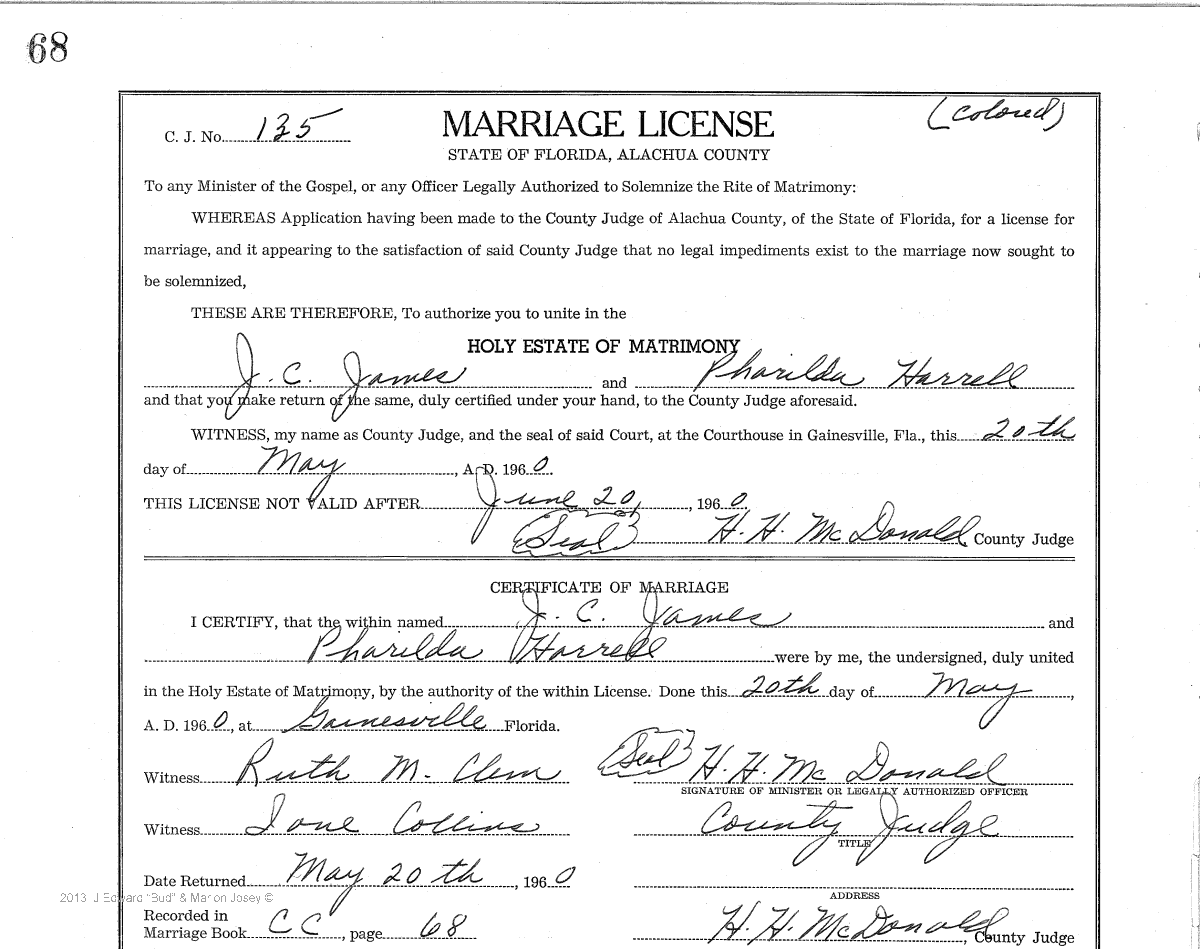 68
(Colored)
C. J. No. 135
MARRIAGE LICENSE
STATE OF FLORIDA, ALACHUA COUNTY
To any Minister of the Gospel, or any Officer Legally Authorized to Solemnize the Rite of Matrimony:
WHEREAS Application having been made to the County Judge of Alachua County, of the State of Florida, for a license for
marriage, and it appearing to the satisfaction of said County Judge that no legal impediments exist to the marriage now sought to
be solemnized,
THESE ARE THEREFORE, To authorize you to unite in the
HOLY ESTATE OF MATRIMONY
J. C. James and Pharilda Harrell
and that you make return of the same, duly certified under your hand, to the County Judge aforesaid.
WITNESS, my name as County Judge, and the seal of said Court, at the Courthouse in Gainesville, Fla., this 20th
day of May, A. D. 1960.
THIS LICENSE NOT VALID AFTER June 20, 1960.
(Seal) H. H. McDonald County Judge
CERTIFICATE OF MARRIAGE
I CERTIFY, that the within named J. C. James and
Pharilda Harrell were by me, the undersigned, duly united
in the Holy Estate of Matrimony, by the authority of the within License. Done this 20th day of May,
A. D. 1960, at Gainesville Florida.
Witness Ruth M. Clem (Seal) H. H. McDonald
SIGNATURE OF MINISTER OR LEGALLY AUTHORIZED OFFICER
Witness Ione Collins County Judge
TITLE
Date Returned May 20th, 1960
ADDRESS
2013 J Edward "Bud" & Marion Josey ©
Recorded in
Marriage Book CC, page 68 H. H. McDonald County Judge